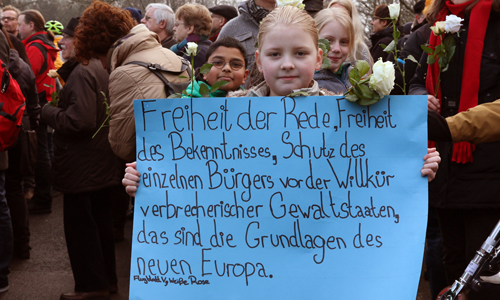 Freiheit der Rede, Freiheit
des Bekenntnisses, Schutz des
einzelnen Bürgers vor der Willkür
verbrecherischer Gewaltstaaten,
das sind die Grundlagen des
neuen Europa.
Flugblatt V, Weiße Rose